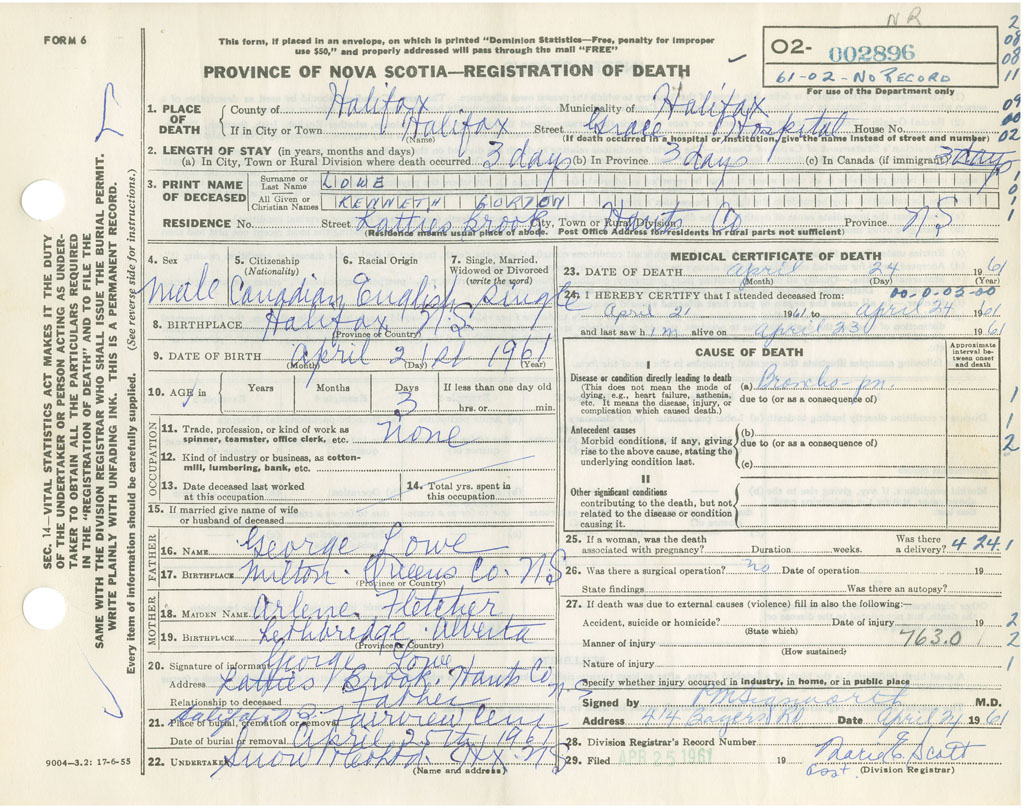 NR
FORM 6
This form, if placed in an envelope, on which is printed "Dominion Statistics—Free, penalty for improper
use $50," and properly addressed will pass through the mail "FREE"
02- 002896
61-02-NO RECORD
For use of the Department only
PROVINCE OF NOVA SCOTIA—REGISTRATION OF DEATH
1. PLACE OF DEATH County of Halifax Municipality of Halifax
If in City or Town Halifax Street Grace Hospital House No.
(Name) (If death occurred in a hospital or institution, give the name instead of street and number)
2. LENGTH OF STAY (in years, months and days)
(a) In City, Town or Rural Division where death occurred 3 days (b) In Province 3 days (c) In Canada (if immigrant) 3 days
3. PRINT NAME OF DECEASED Surname or Last Name LOWE
All Given or Christian Names KENNETH GORDON
RESIDENCE No. Street Katties Brook City, Town or Rural Division Hants Co Province N.S
(Residence means usual place of abode. Post Office Address for residents in rural parts not sufficient)
4. Sex 5. Citizenship (Nationality) 6. Racial Origin 7. Single, Married, Widowed or Divorced (write the word)
male Canadian English Single
8. BIRTHPLACE Halifax N.S
(Province or Country)
9. DATE OF BIRTH April 21st 1961
(Month) (Day) (Year)
10. AGE in Years Months Days If less than one day old
3 hrs. or min.
OCCUPATION
11. Trade, profession, or kind of work as
spinner, teamster, office clerk, etc. none
12. Kind of industry or business, as cotton-
mill, lumbering, bank, etc.
13. Date deceased last worked
at this occupation
14. Total yrs. spent in
this occupation
15. If married give name of wife
or husband of deceased
FATHER
16. NAME George Lowe
17. BIRTHPLACE Milton. Queens Co. N.S
(Province or Country)
MOTHER
18. MAIDEN NAME Arlene Fletcher
19. BIRTHPLACE Lethbridge. Alberta
(Province or Country)
20. Signature of informant George Lowe
Address Katties Brook. Hants Co N-S
Relationship to deceased Father
21. Place of burial, cremation or removal Halifax N.S. Fairview Cem
Date of burial or removal April 25th 1961
22. UNDERTAKER Snow & Co Ltd. Hx. N-S
(Name and address)
MEDICAL CERTIFICATE OF DEATH
23. DATE OF DEATH April 24 1961
(Month) (Day) (Year)
24. I HEREBY CERTIFY that I attended deceased from: 00-0-03-00
April 21 1961 to April 24 1961
and last saw him alive on April 23 1961
CAUSE OF DEATH
Approximate interval between onset and death
I
Disease or condition directly leading to death
(This does not mean the mode of
dying, e.g., heart failure, asthenia,
etc. It means the disease, injury, or
complication which caused death.)
(a) Broncho-pn.
due to (or as a consequence of)
Antecedent causes
Morbid conditions, if any, giving
rise to the above cause, stating the
underlying condition last.
(b)
due to (or as a consequence of)
(c)
II
Other significant conditions
contributing to the death, but not
related to the disease or condition
causing it.
25. If a woman, was the death
associated with pregnancy? Duration weeks. Was there a delivery? 4 24 1
26. Was there a surgical operation? no Date of operation 19
State findings Was there an autopsy?
27. If death was due to external causes (violence) fill in also the following:—
Accident, suicide or homicide? Date of injury 19
(State which)
Manner of injury 763.0
(How sustained)
Nature of injury
Specify whether injury occurred in industry, in home, or in public place
Signed by M.D.
Address 414 Bayers Rd Date April 24 1961
28. Division Registrar's Record Number
29. Filed APR 25 1961 19 Marie E. Scott
(Division Registrar)
SEC. 14—VITAL STATISTICS ACT MAKES IT THE DUTY
OF THE UNDERTAKER OR PERSON ACTING AS UNDER-
TAKER TO OBTAIN ALL THE PARTICULARS REQUIRED
IN THE "REGISTRATION OF DEATH" AND TO FILE THE
SAME WITH THE DIVISION REGISTRAR WHO SHALL ISSUE THE BURIAL PERMIT.
WRITE PLAINLY WITH UNFADING INK. THIS IS A PERMANENT RECORD.
Every item of information should be carefully supplied. (See reverse side for instructions.)
9004—3.2: 17-6-55